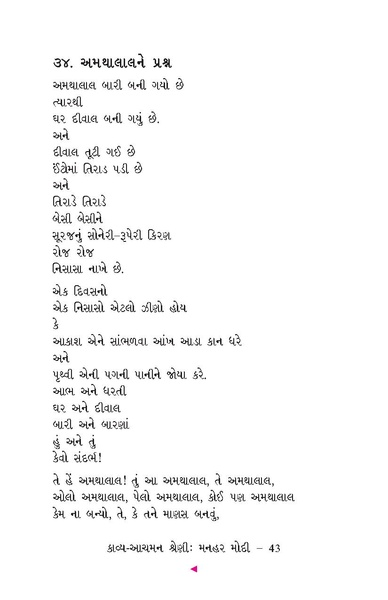 ૩૪. અમથાલાલને પ્રશ્ન
અમથાલાલ બારી બની ગયો છે
ત્યારથી
ઘર દીવાલ બની ગયું છે.
અને
દીવાલ તૂટી ગઈ છે
ઈંટોમાં તિરાડ પડી છે
અને
તિરાડે તિરાડે
બેસી બેસીને
સૂરજનું સોનેરી–રૂપેરી કિરણ
રોજ રોજ
નિસાસા નાખે છે.
એક દિવસનો
એક નિસાસો એટલો ઝીણો હોય
કે
આકાશ એને સાંભળવા આંખ આડા કાન ધરે
અને
પૃથ્વી એની પગની પાનીને જોયા કરે.
આભ અને ધરતી
ઘર અને દીવાલ
બારી અને બારણાં
હું અને તું
કેવો સંદર્ભ!
તે હેં અમથાલાલ! તું આ અમથાલાલ, તે અમથાલાલ,
ઓલો અમથાલાલ, પેલો અમથાલાલ, કોઈ પણ અમથાલાલ
કેમ ના બન્યો, તે, કે તને માણસ બનવું,
કાવ્ય-આચમન શ્રેણીઃ મનહર મોદી – 43